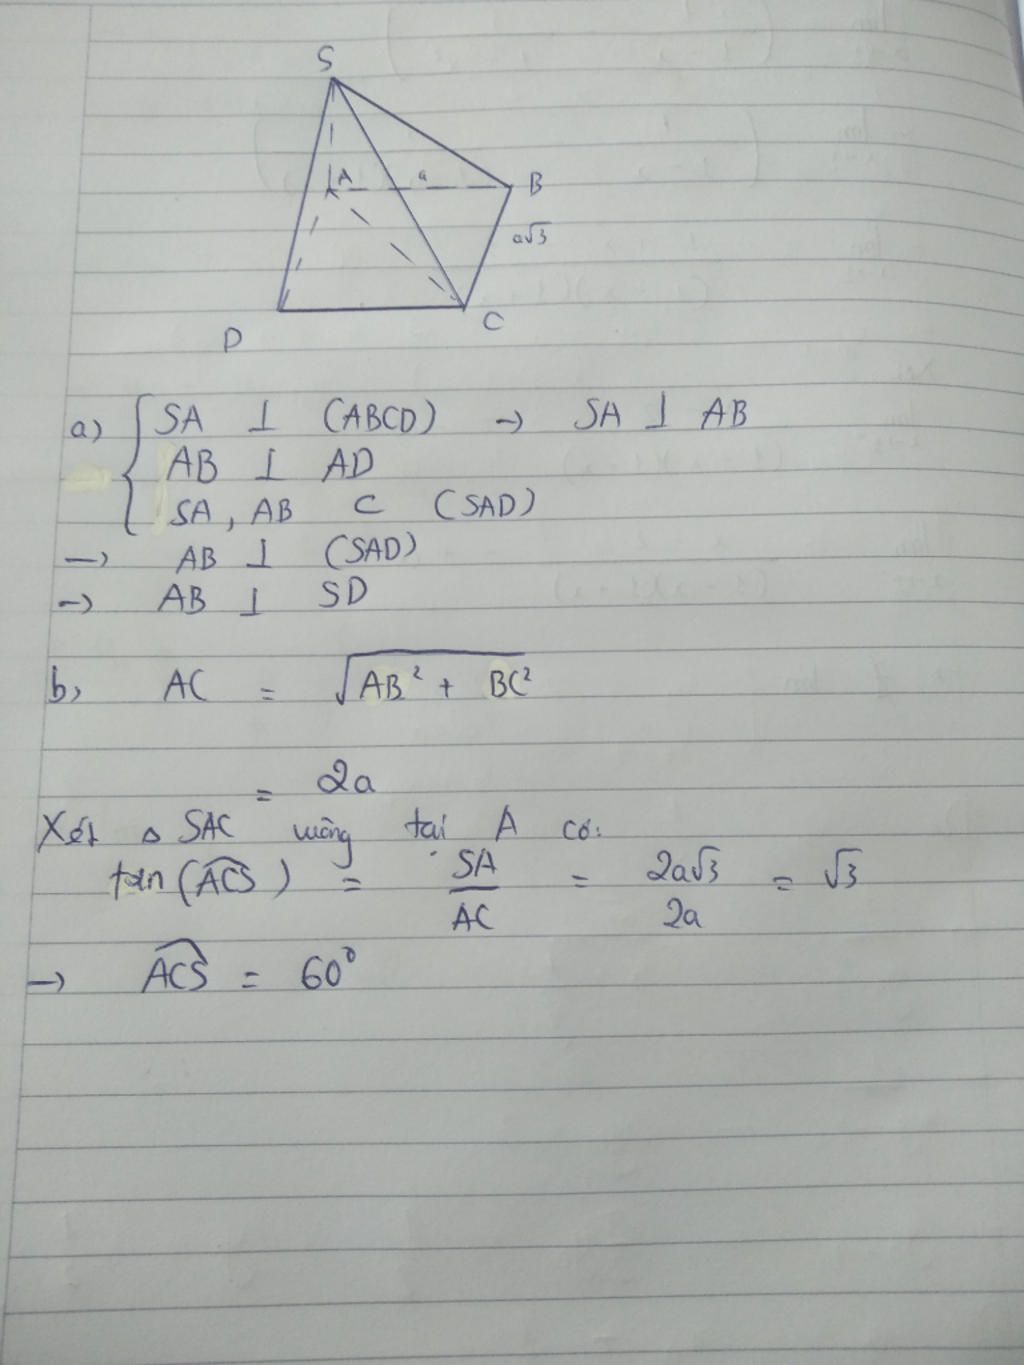 S
A a B
a√3
D C
a) { SA ⊥ (ABCD) → SA ⊥ AB
AB ⊥ AD
SA , AB ⊂ (SAD)
→ AB ⊥ (SAD)
→ AB ⊥ SD
b, AC = √(AB² + BC²)
= 2a
Xét △ SAC vuông tại A có:
tan(ACS) = SA/AC = 2a√3/2a = √3
→ ACS = 60°